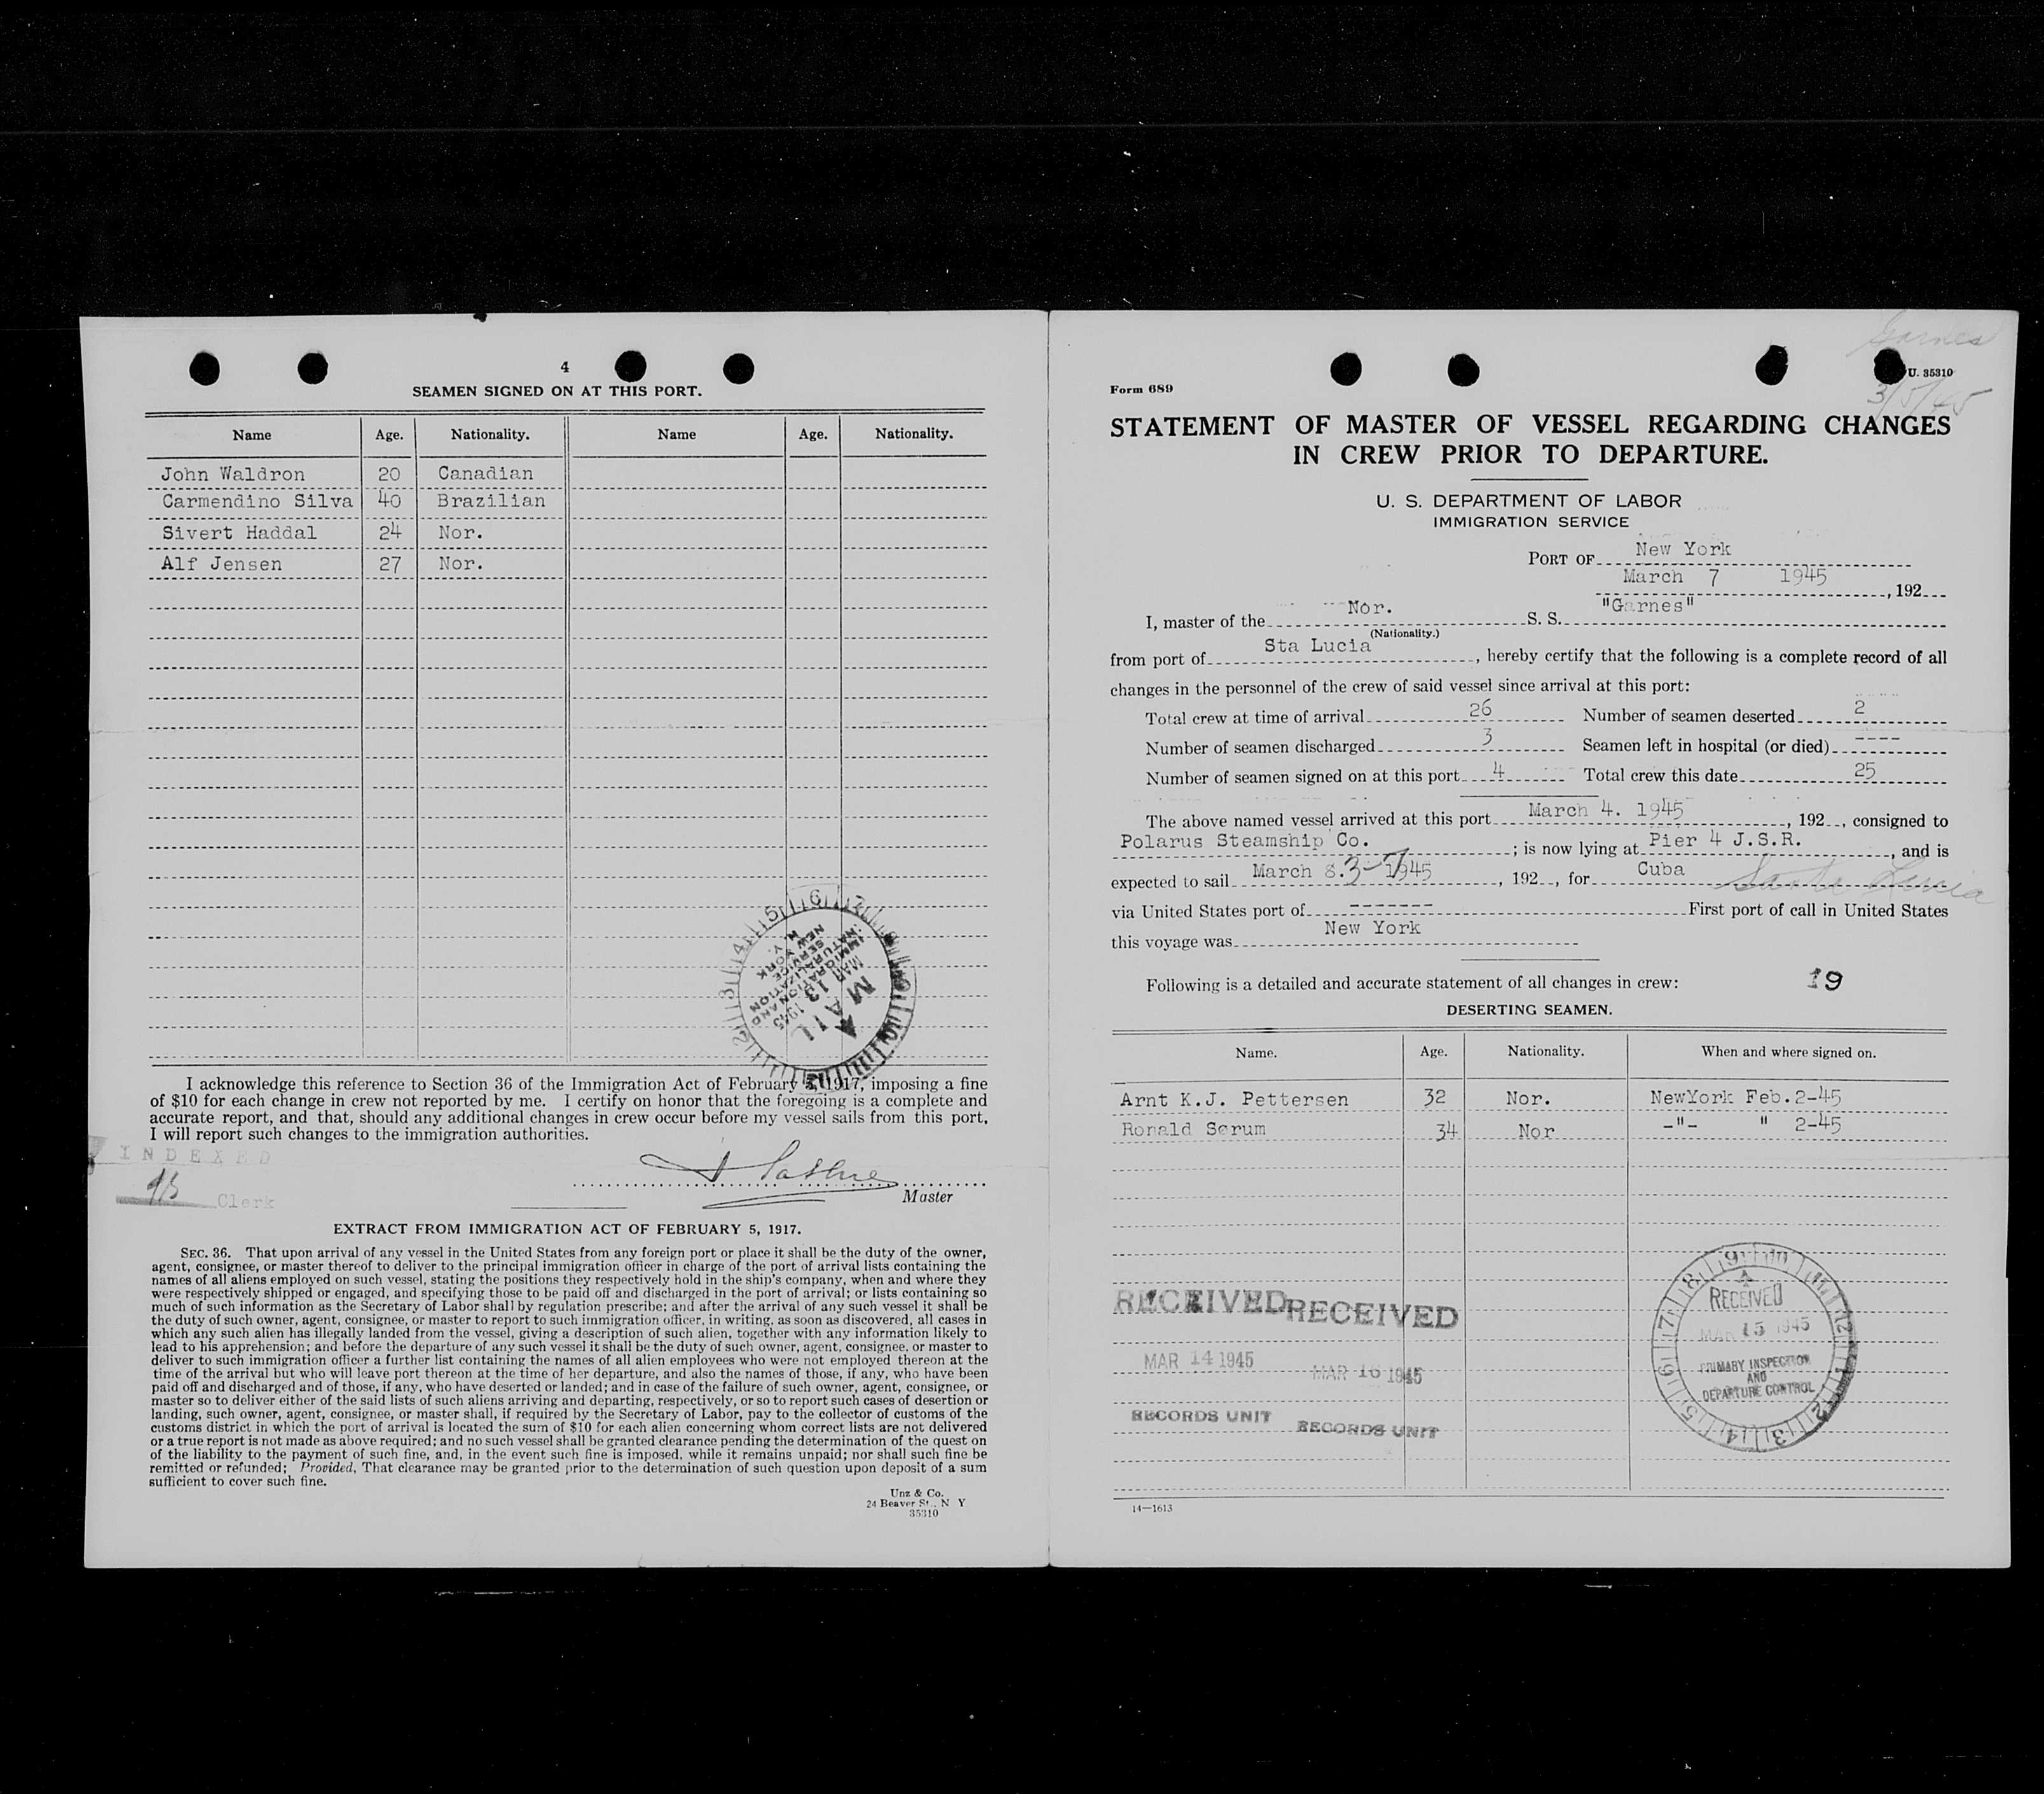 4
SEAMEN SIGNED ON AT THIS PORT.
Name Age. Nationality. Name Age. Nationality.
John Waldron 20 Canadian
Carmendino Silva 40 Brazilian
Sivert Haddal 24 Nor.
Alf Jensen 27 Nor.
MAIL
MAR 13 1945
IMMIGRATION AND
NATURALIZATION
SERVICE
NEW YORK
N. Y.
I acknowledge this reference to Section 36 of the Immigration Act of February 5, 1917, imposing a fine
of $10 for each change in crew not reported by me. I certify on honor that the foregoing is a complete and
accurate report, and that, should any additional changes in crew occur before my vessel sails from this port,
I will report such changes to the immigration authorities.
INDEXED
Clerk
Master
EXTRACT FROM IMMIGRATION ACT OF FEBRUARY 5, 1917.
SEC. 36. That upon arrival of any vessel in the United States from any foreign port or place it shall be the duty of the owner,
agent, consignee, or master thereof to deliver to the principal immigration officer in charge of the port of arrival lists containing the
names of all aliens employed on such vessel, stating the positions they respectively hold in the ship's company, when and where they
were respectively shipped or engaged, and specifying those to be paid off and discharged in the port of arrival; or lists containing so
much of such information as the Secretary of Labor shall by regulation prescribe; and after the arrival of any such vessel it shall be
the duty of such owner, agent, consignee, or master to report to such immigration officer, in writing, as soon as discovered, all cases in
which any such alien has illegally landed from the vessel, giving a description of such alien, together with any information likely to
lead to his apprehension; and before the departure of any such vessel it shall be the duty of such owner, agent, consignee, or master to
deliver to such immigration officer a further list containing the names of all alien employees who were not employed thereon at the
time of the arrival but who will leave port thereon at the time of her departure, and also the names of those, if any, who have been
paid off and discharged and of those, if any, who have deserted or landed; and in case of the failure of such owner, agent, consignee, or
master so to deliver either of the said lists of such aliens arriving and departing, respectively, or so to report such cases of desertion or
landing, such owner, agent, consignee, or master shall, if required by the Secretary of Labor, pay to the collector of customs of the
customs district in which the port of arrival is located the sum of $10 for each alien concerning whom correct lists are not delivered
or a true report is not made as above required; and no such vessel shall be granted clearance pending the determination of the quest on
of the liability to the payment of such fine, and, in the event such fine is imposed, while it remains unpaid; nor shall such fine be
remitted or refunded; Provided, That clearance may be granted prior to the determination of such question upon deposit of a sum
sufficient to cover such fine.
Unz & Co.
24 Beaver St., N Y
35310
Garnes
3/5/45
U. 35310
Form 689
STATEMENT OF MASTER OF VESSEL REGARDING CHANGES
IN CREW PRIOR TO DEPARTURE.
U. S. DEPARTMENT OF LABOR
IMMIGRATION SERVICE
PORT OF New York
March 7 1945, 192
I, master of the Nor. S. S. "Garnes"
(Nationality.)
from port of Sta Lucia, hereby certify that the following is a complete record of all
changes in the personnel of the crew of said vessel since arrival at this port:
Total crew at time of arrival 26 Number of seamen deserted 2
Number of seamen discharged 3 Seamen left in hospital (or died) ----
Number of seamen signed on at this port 4 Total crew this date 25
The above named vessel arrived at this port March 4. 1945, 192 , consigned to
Polarus Steamship Co. ; is now lying at Pier 4 J.S.R., and is
expected to sail March 8. 3-7 1945, 192 , for Cuba Santa Lucia
via United States port of ------- First port of call in United States
this voyage was New York
Following is a detailed and accurate statement of all changes in crew: 19
DESERTING SEAMEN.
Name. Age. Nationality. When and where signed on.
Arnt K.J. Pettersen 32 Nor. NewYork Feb.2-45
Ronald Sørum 34 Nor -"- " 2-45
RECEIVED RECEIVED
MAR 14 1945 MAR 16 1945
RECORDS UNIT RECORDS UNIT
RECEIVED
MAR 15 1945
PRIMARY INSPECTION
AND
DEPARTURE CONTROL
14—1613